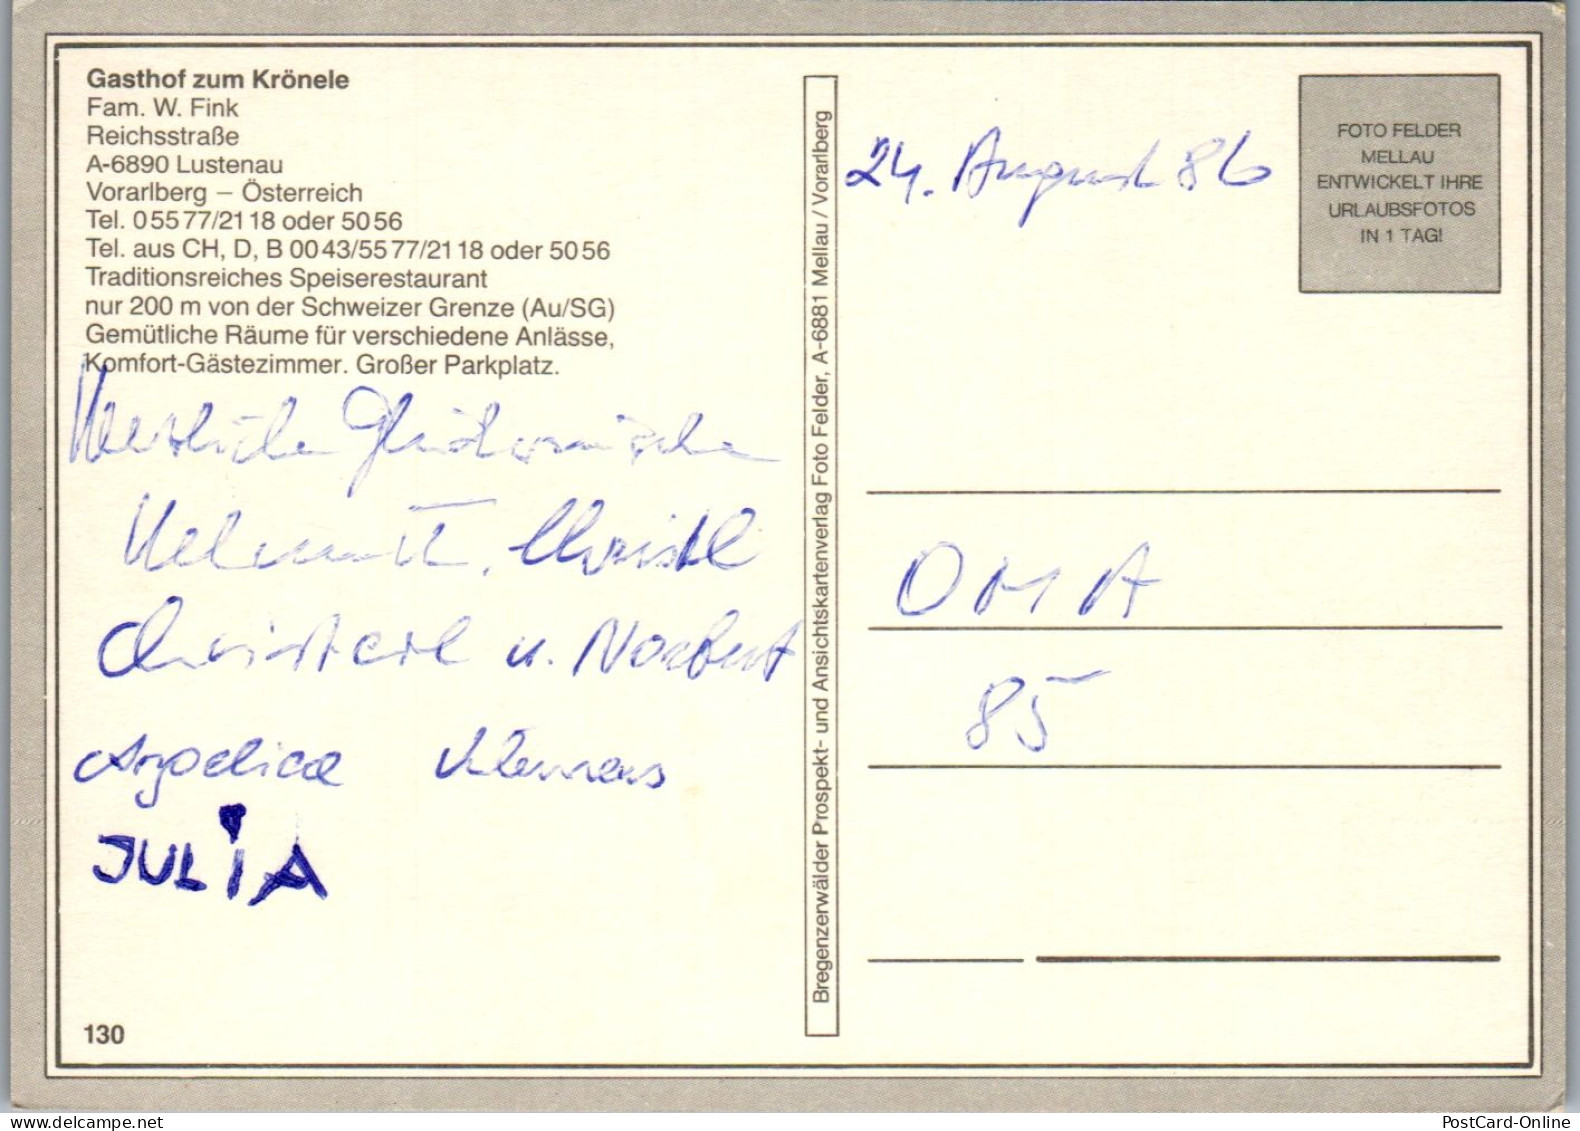 Gasthof zum Krönele
Fam. W. Fink
Reichsstraße
A-6890 Lustenau
Vorarlberg – Österreich
Tel. 0 55 77/21 18 oder 50 56
Tel. aus CH, D, B 00 43/55 77/21 18 oder 50 56
Traditionsreiches Speiserestaurant
nur 200 m von der Schweizer Grenze (Au/SG)
Gemütliche Räume für verschiedene Anlässe,
Komfort-Gästezimmer. Großer Parkplatz.
Herzliche Glückwünsche
Helmut, Christl
Christerl u. Norbert
Angelica Klemens
JULiA
130
Bregenzerwälder Prospekt- und Ansichtskartenverlag Foto Felder, A-6881 Mellau / Vorarlberg
24. August 86
FOTO FELDER
MELLAU
ENTWICKELT IHRE
URLAUBSFOTOS
IN 1 TAG!
OMA
85
PostCard-Online